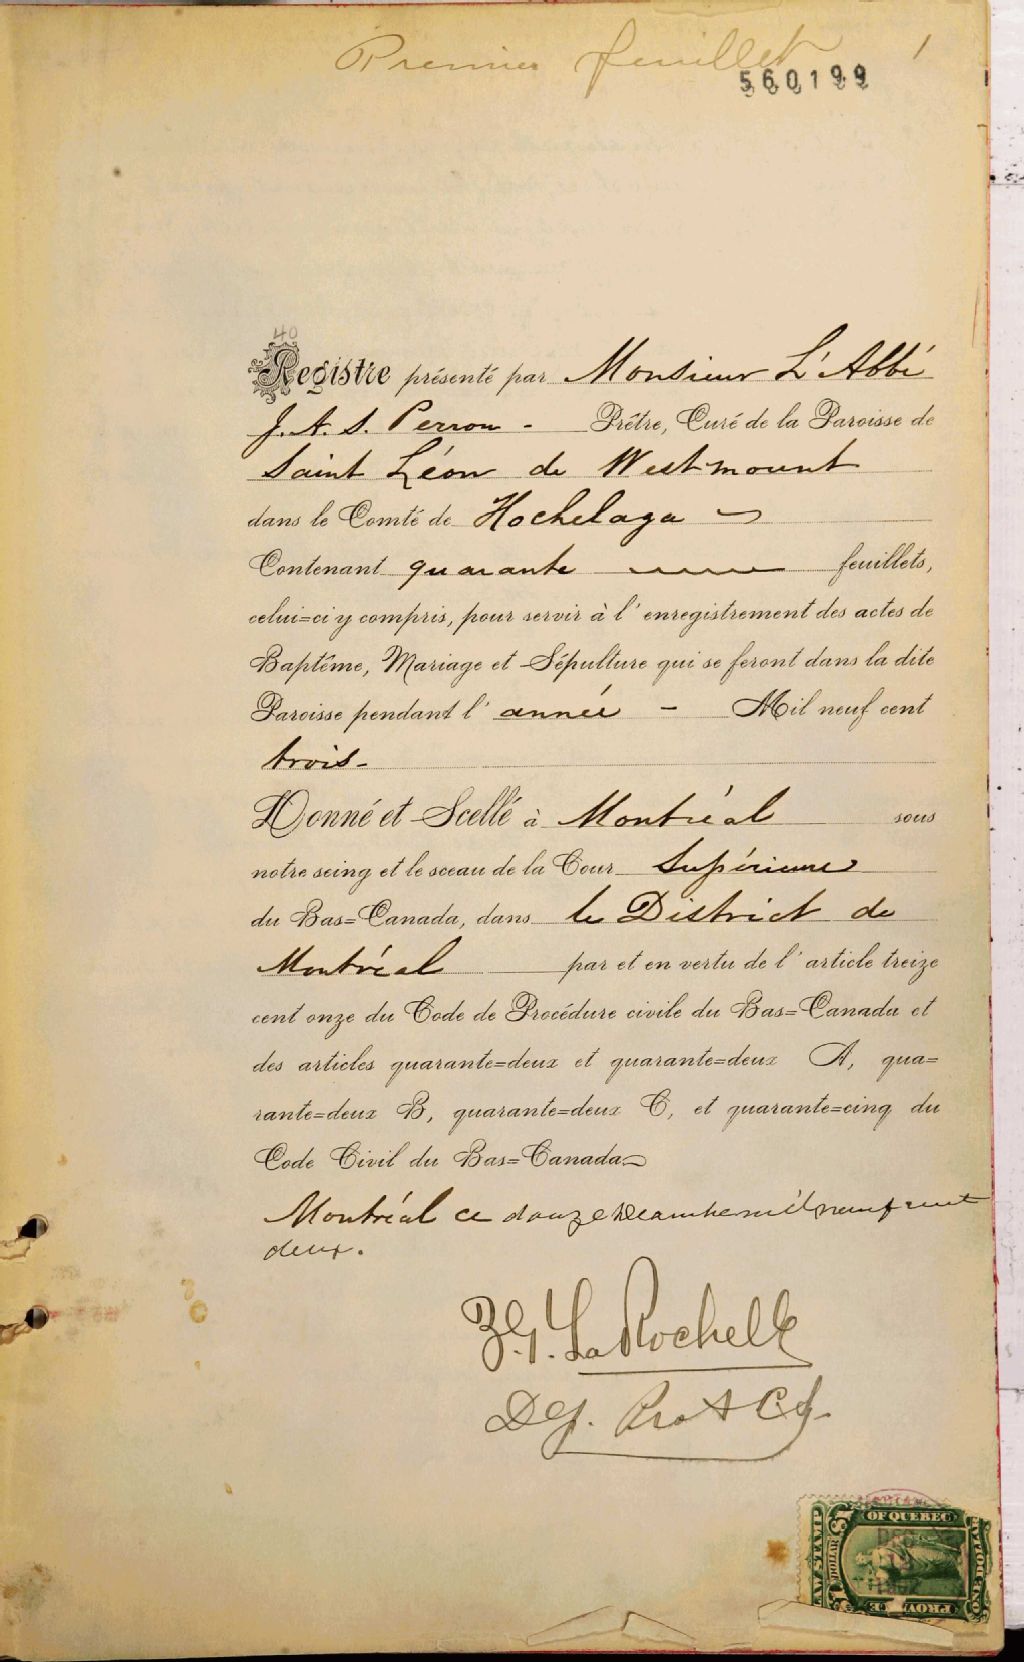 Premier feuillet 1
560199
40
Registre présenté par Monsieur L'Abbé
J. A. S. Perron - Prêtre, Curé de la Paroisse de
Saint Léon de Westmount
dans le Comté de Hochelaga
Contenant quarante feuillets,
celui=ci y compris, pour servir à l'enregistrement des actes de
Baptême, Mariage et Sépulture qui se feront dans la dite
Paroisse pendant l'année - Mil neuf cent
trois-
Donné et Scellé à Montréal sous
notre seing et le sceau de la Cour Supérieure
du Bas=Canada, dans le District de
Montréal par et en vertu de l'article treize
cent onze du Code de Procédure civile du Bas=Canada et
des articles quarante=deux et quarante=deux A, qua=
rante=deux B, quarante=deux C, et quarante=cinq du
Code Civil du Bas=Canada
Montréal ce douze décembre mil neuf cent
deux.
Z. G. LaRochelle
Dep. Prot C S.
OF QUEBEC
LAW STAMP
ONE DOLLAR
PROV
DOLLAR
$1